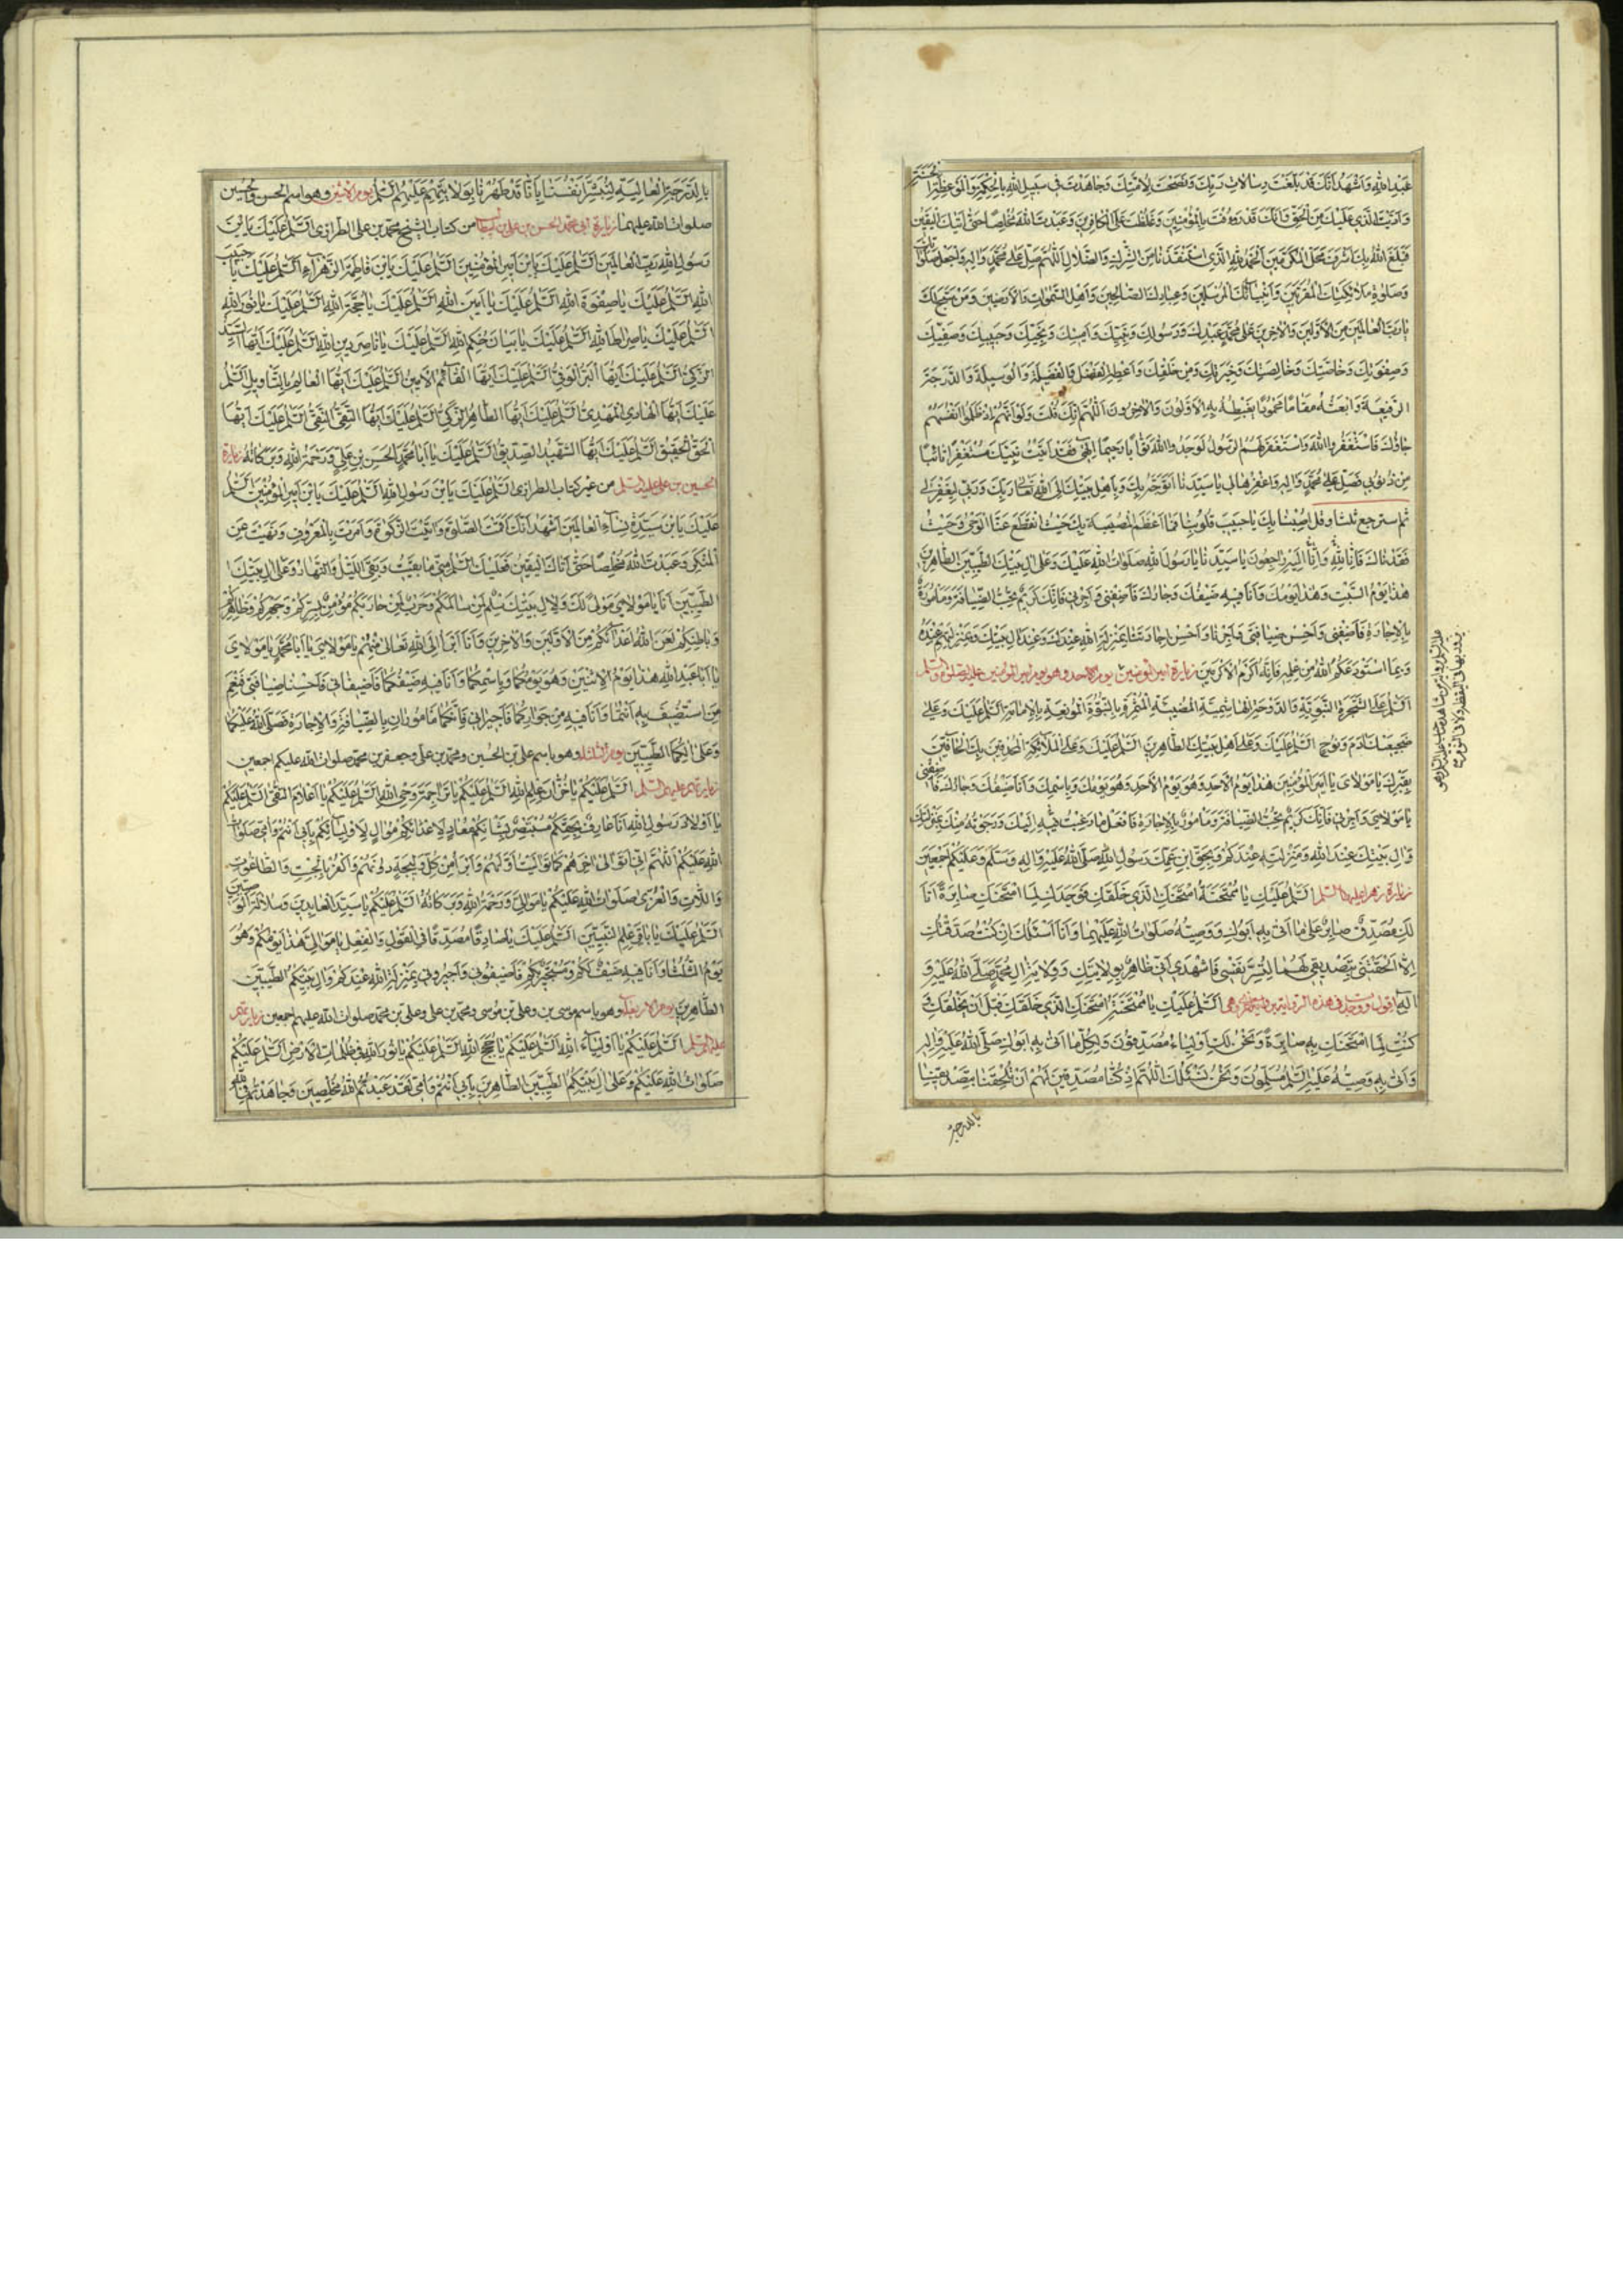 عَبْدِ اللهِ وَاَشْهَدُ اَنَّكَ قَدْ بَلَّغْتَ رِسَالاتِ رَبِّكَ وَنَصَحْتَ لِاُمَّتِكَ وَجَاهَدْتَ فِي سَبِيلِ اللهِ بِالْحِكْمَةِ وَالْمَوْعِظَةِ الْحَسَنَةِ
وَاَدَّيْتَ الَّذِي عَلَيْكَ مِنَ الْحَقِّ وَاَنَّكَ قَدْ رَؤُفْتَ بِالْمُؤْمِنِينَ وَغَلُظْتَ عَلَى الْكَافِرِينَ وَعَبَدْتَ اللهَ مُخْلِصًا حَتَّى اَتيكَ الْيَقِينُ
فَبَلَغَ اللهُ بِكَ شَرَفَ مَحَلِّ الْمُكَرَّمِينَ اَلْحَمْدُ لِلّهِ الَّذِي اسْتَنْقَذَنَا بِكَ مِنَ الشِّرْكِ وَالضَّلالِ اَللّهُمَّ صَلِّ عَلَى مُحَمَّدٍ وَالِهِ وَاجْعَلْ صَلَوَاتِكَ
وَصَلَوةَ مَلائِكَتِكَ الْمُقَرَّبِينَ وَاَنْبِيَائِكَ الْمُرْسَلِينَ وَعِبَادِكَ الصَّالِحِينَ وَاَهْلِ السَّموَاتِ وَالْاَرَضِينَ وَمَنْ سَبَّحَ لَكَ
يَا رَبَّ الْعَالَمِينَ مِنَ الْاَوَّلِينَ وَالْاخِرِينَ عَلَى مُحَمَّدٍ عَبْدِكَ وَرَسُولِكَ وَنَبِيِّكَ وَاَمِينِكَ وَنَجِيبِكَ وَحَبِيبِكَ وَصَفِيِّكَ
وَصِفْوَتِكَ وَخَاصَّتِكَ وَخَالِصَتِكَ وَخِيَرَتِكَ مِنْ خَلْقِكَ وَاَعْطِهِ الْفَضْلَ وَالْفَضِيلَةَ وَالْوَسِيلَةَ وَالدَّرَجَةَ
الرَّفِيعَةَ وَابْعَثْهُ مَقَامًا مَحْمُودًا يَغْبِطُهُ بِهِ الْاَوَّلُونَ وَالْاخِرُونَ اَللّهُمَّ اِنَّكَ قُلْتَ وَلَوْ اَنَّهُمْ اِذْ ظَلَمُوا اَنْفُسَهُمْ
جَاؤُكَ فَاسْتَغْفَرُوا اللهَ وَاسْتَغْفَرَ لَهُمُ الرَّسُولُ لَوَجَدُوا اللهَ تَوَّابًا رَحِيمًا اِلهِي فَقَدْ اَتَيْتُ نَبِيَّكَ مُسْتَغْفِرًا تَائِبًا
مِنْ ذُنُوبِي فَصَلِّ عَلَى مُحَمَّدٍ وَالِهِ وَاغْفِرْهَا لِي يَا سَيِّدَنَا اَتَوَجَّهُ بِكَ وَبِاَهْلِ بَيْتِكَ اِلَى اللهِ تَعَالَى رَبِّكَ وَرَبِّي لِيَغْفِرَ لِي
ثم استرجع ثلثا وقل اُصِبْنَا بِكَ يَا حَبِيبَ قُلُوبِنَا فَمَا اَعْظَمَ الْمُصِيبَةَ بِكَ حَيْثُ انْقَطَعَ عَنَّا الْوَحْيُ وَحَيْثُ
فَقَدْنَاكَ فَاِنَّا لِلّهِ وَاِنَّا اِلَيْهِ رَاجِعُونَ يَا سَيِّدَنَا يَا رَسُولَ اللهِ صَلَوَاتُ اللهِ عَلَيْكَ وَعَلَى الِ بَيْتِكَ الطَّيِّبِينَ الطَّاهِرِينَ
هذَا يَوْمُ السَّبْتِ وَهُوَ يَوْمُكَ وَاَنَا فِيهِ ضَيْفُكَ وَجَارُكَ فَاَضِفْنِي وَاَجِرْنِي فَاِنَّكَ كَرِيمٌ تُحِبُّ الضِّيَافَةَ وَمَأْمُورٌ
بِالْاِجَارَةِ فَاَضِفْنِي وَاَحْسِنْ ضِيَافَتِي وَاَجِرْنَا وَاَحْسِنْ اِجَارَتَنَا بِمَنْزِلَةِ اللهِ عِنْدَكَ وَعِنْدَ الِ بَيْتِكَ وَبِمَنْزِلَتِهِمْ عِنْدَهُ
وَبِمَا اسْتَوْدَعَكُمُ اللهُ مِنْ عِلْمِهِ فَاِنَّهُ اَكْرَمُ الْاَكْرَمِينَ زيارة امير المؤمنين يوم الاحد وهو يوم امير المؤمنين عليه الصلوة والسلم
اَلسَّلمُ عَلَى الشَّجَرَةِ النَّبَوِيَّةِ وَالدَّوْحَةِ الْهَاشِمِيَّةِ الْمُضِيئَةِ الْمُثْمِرَةِ بِالنُّبُوَّةِ الْمُونِعَةِ بِالْاِمَامَةِ اَلسَّلمُ عَلَيْكَ وَعَلَى
ضَجِيعَيْكَ ادَمَ وَنُوحٍ اَلسَّلمُ عَلَيْكَ وَعَلَى اَهْلِ بَيْتِكَ الطَّاهِرِينَ اَلسَّلمُ عَلَيْكَ وَعَلَى الْمَلائِكَةِ الْمُحْدِقِينَ بِكَ الْحَافِّينَ
بِقَبْرِكَ يَا مَوْلايَ يَا اَمِيرَ الْمُؤْمِنِينَ هذَا يَوْمُ الْاَحَدِ وَهُوَ يَوْمُكَ وَبِاسْمِكَ وَاَنَا ضَيْفُكَ وَجَارُكَ فَاَضِفْنِي
يَا مَوْلايَ وَاَجِرْنِي فَاِنَّكَ كَرِيمٌ تُحِبُّ الضِّيَافَةَ وَمَأْمُورٌ بِالْاِجَارَةِ فَافْعَلْ مَا رَغِبْتُ فِيهِ اِلَيْكَ وَرَجَوْتُهُ مِنْكَ بِمَنْزِلَتِكَ
وَالِ بَيْتِكَ عِنْدَ اللهِ وَمَنْزِلَتِهِ عِنْدَكُمْ وَبِحَقِّ ابْنِ عَمِّكَ رَسُولِ اللهِ صَلَّى اللهُ عَلَيْهِ وَالِهِ وَسَلَّمَ وَعَلَيْكُمْ اَجْمَعِينَ
زيارة زهرا عليها السلم اَلسَّلمُ عَلَيْكِ يَا مُمْتَحَنَةُ امْتَحَنَكِ الَّذِي خَلَقَكِ فَوَجَدَكِ لِمَا امْتَحَنَكِ صَابِرَةً اَنَا
لَكِ مُصَدِّقٌ صَابِرٌ عَلَى مَا اَتَى بِهِ اَبُوكِ وَوَصِيُّهُ صَلَوَاتُ اللهِ عَلَيْهِمَا وَاَنَا اَسْئَلُكِ اِنْ كُنْتُ صَدَّقْتُكِ
اِلّا اَلْحَقْتِنِي بِتَصْدِيقِي لَهُمَا لِتُسَرَّ نَفْسِي فَاشْهَدِي اَنِّي طَاهِرٌ بِوِلايَتِكِ وَوِلايَةِ الِ مُحَمَّدٍ صَلَّى اللهُ عَلَيْهِ وَ
الِهِ اقول ووجدت فى هذه الزيارة برواية اخرى وهى اَلسَّلمُ عَلَيْكِ يَا مُمْتَحَنَةُ امْتَحَنَكِ الَّذِي خَلَقَكِ قَبْلَ اَنْ يَخْلُقَكِ
كُنْتِ لِمَا امْتَحَنَكِ بِهِ صَابِرَةً وَنَحْنُ لَكِ اَوْلِيَاءُ مُصَدِّقُونَ وَلِكُلِّ مَا اَتَى بِهِ اَبُوكِ صَلَّى اللهُ عَلَيْهِ وَالِهِ
وَاَتَى بِهِ وَصِيُّهُ عَلَيْهِ السَّلمُ مُسَلِّمُونَ وَنَحْنُ نَسْئَلُكَ اَللّهُمَّ اِذْ كُنَّا مُصَدِّقِينَ لَهُمْ اَنْ تُلْحِقَنَا بِتَصْدِيقِنَا
بالدرجة
بِالدَّرَجَةِ الْعَالِيَةِ لِنُبَشِّرَ اَنْفُسَنَا بِاَنَّا قَدْ طَهُرْنَا بِوَلايَتِهِمْ عَلَيْهِمُ السَّلمُ يوم الاثنين وهو باسم الحسن والحسين
صلوات الله عليهما زيارة ابى محمد الحسن بن على بن ابيطالب من كتاب الشيخ محمد بن على الطرازى اَلسَّلمُ عَلَيْكَ يَا بْنَ
رَسُولِ اللهِ رَبِّ الْعَالَمِينَ اَلسَّلمُ عَلَيْكَ يَا بْنَ اَمِيرِ الْمُؤْمِنِينَ اَلسَّلمُ عَلَيْكَ يَا بْنَ فَاطِمَةَ الزَّهْرَاءِ اَلسَّلمُ عَلَيْكَ يَا حَبِيبَ
اللهِ اَلسَّلمُ عَلَيْكَ يَا صِفْوَةَ اللهِ اَلسَّلمُ عَلَيْكَ يَا اَمِينَ اللهِ اَلسَّلمُ عَلَيْكَ يَا حُجَّةَ اللهِ اَلسَّلمُ عَلَيْكَ يَا نُورَ اللهِ
اَلسَّلمُ عَلَيْكَ يَا صِرَاطَ اللهِ اَلسَّلمُ عَلَيْكَ يَا بَيَانَ حُكْمِ اللهِ اَلسَّلمُ عَلَيْكَ يَا نَاصِرَ دِينِ اللهِ اَلسَّلمُ عَلَيْكَ اَيُّهَا السَّيِّدُ
الزَّكِيُّ اَلسَّلمُ عَلَيْكَ اَيُّهَا الْبَرُّ الْوَفِيُّ اَلسَّلمُ عَلَيْكَ اَيُّهَا الْقَائِمُ الْاَمِينُ اَلسَّلمُ عَلَيْكَ اَيُّهَا الْعَالِمُ بِالتَّأْوِيلِ اَلسَّلمُ
عَلَيْكَ اَيُّهَا الْهَادِي الْمَهْدِيُّ اَلسَّلمُ عَلَيْكَ اَيُّهَا الطَّاهِرُ الزَّكِيُّ اَلسَّلمُ عَلَيْكَ اَيُّهَا التَّقِيُّ النَّقِيُّ اَلسَّلمُ عَلَيْكَ اَيُّهَا
الْحَقُّ الْحَقِيقُ اَلسَّلمُ عَلَيْكَ اَيُّهَا الشَّهِيدُ الصِّدِّيقُ اَلسَّلمُ عَلَيْكَ يَا اَبَا مُحَمَّدٍ الْحَسَنَ بْنَ عَلِيٍّ وَرَحْمَةُ اللهِ وَبَرَكَاتُهُ زيارة
الحسين بن على عليه السلم من غير كتاب الطرازى اَلسَّلمُ عَلَيْكَ يَا بْنَ رَسُولِ اللهِ اَلسَّلمُ عَلَيْكَ يَا بْنَ اَمِيرِ الْمُؤْمِنِينَ اَلسَّلمُ
عَلَيْكَ يَا بْنَ سَيِّدَةِ نِسَاءِ الْعَالَمِينَ اَشْهَدُ اَنَّكَ اَقَمْتَ الصَّلوةَ وَاتَيْتَ الزَّكوةَ وَاَمَرْتَ بِالْمَعْرُوفِ وَنَهَيْتَ عَنِ
الْمُنْكَرِ وَعَبَدْتَ اللهَ مُخْلِصًا حَتَّى اَتَاكَ الْيَقِينُ فَعَلَيْكَ السَّلمُ مِنِّي مَا بَقِيتُ وَبَقِيَ اللَّيْلُ وَالنَّهَارُ وَعَلَى الِ بَيْتِكَ
الطَّيِّبِينَ اَنَا يَا مَوْلايَ مَوْلًى لَكَ وَلِالِ بَيْتِكَ سِلْمٌ لِمَنْ سَالَمَكُمْ وَحَرْبٌ لِمَنْ حَارَبَكُمْ مُؤْمِنٌ بِسِرِّكُمْ وَجَهْرِكُمْ وَظَاهِرِكُمْ
وَبَاطِنِكُمْ لَعَنَ اللهُ اَعْدَائَكُمْ مِنَ الْاَوَّلِينَ وَالْاخِرِينَ وَاَنَا اَبْرَأُ اِلَى اللهِ تَعَالَى مِنْهُمْ يَا مَوْلايَ يَا اَبَا مُحَمَّدٍ يَا مَوْلايَ
يَا اَبَا عَبْدِ اللهِ هذَا يَوْمُ الْاِثْنَيْنِ وَهُوَ يَوْمُكُمَا وَبِاسْمِكُمَا وَاَنَا فِيهِ ضَيْفُكُمَا فَاَضِيفَانِي فَاَحْسِنَا ضِيَافَتِي فَنِعْمَ
مَنِ اسْتُضِيفَ بِهِ اَنْتُمَا وَاَنَا فِيهِ مِنْ جِوَارِكُمَا فَاَجِيرَانِي فَاِنَّكُمَا مَأْمُورَانِ بِالضِّيَافَةِ وَالْاِجَارَةِ فَصَلَّى اللهُ عَلَيْكُمَا
وَعَلَى الِكُمَا الطَّيِّبِينَ يوم الثلثا وهو باسم على بن الحسين ومحمد بن على وجعفر بن محمد صلوات الله عليهم اجمعين
زيارتهم عليهم السلم اَلسَّلمُ عَلَيْكُمْ يَا خُزَّانَ عِلْمِ اللهِ اَلسَّلمُ عَلَيْكُمْ يَا تَرَاجِمَةَ وَحْيِ اللهِ اَلسَّلمُ عَلَيْكُمْ يَا اَعْلامَ التُّقَى اَلسَّلمُ عَلَيْكُمْ
يَا اَوْلادَ رَسُولِ اللهِ اَنَا عَارِفٌ بِحَقِّكُمْ مُسْتَبْصِرٌ بِشَأْنِكُمْ مُعَادٍ لِاَعْدَائِكُمْ مُوَالٍ لِاَوْلِيَائِكُمْ بِاَبِي اَنْتُمْ وَاُمِّي صَلَوَاتُ
اللهِ عَلَيْكُمْ اَللّهُمَّ اِنِّي اَتَوَالَى اخِرَهُمْ كَمَا تَوَالَيْتُ اَوَّلَهُمْ وَاَبْرَأُ مِنْ كُلِّ وَلِيجَةٍ دُونَهُمْ وَاَكْفُرُ بِالْجِبْتِ وَالطَّاغُوتِ
وَاللّاتِ وَالْعُزَّى صَلَوَاتُ اللهِ عَلَيْكُمْ يَا مَوَالِيَّ وَرَحْمَةُ اللهِ وَبَرَكَاتُهُ اَلسَّلمُ عَلَيْكَ يَا سَيِّدَ الْعَابِدِينَ وَسُلالَةَ الْوَصِيِّينَ
اَلسَّلمُ عَلَيْكَ يَا بَاقِرَ عِلْمِ النَّبِيِّينَ اَلسَّلمُ عَلَيْكَ يَا صَادِقًا مُصَدَّقًا فِي الْقَوْلِ وَالْفِعْلِ يَا مَوَالِيَّ هذَا يَوْمُكُمْ وَهُوَ
يَوْمُ الثُّلثَا وَاَنَا فِيهِ ضَيْفٌ لَكُمْ وَمُسْتَجِيرٌ بِكُمْ فَاَضِيفُونِي وَاَجِيرُونِي بِمَنْزِلَةِ اللهِ عِنْدَكُمْ وَالِ بَيْتِكُمُ الطَّيِّبِينَ
الطَّاهِرِينَ يوم الاربعا وهو باسم موسى بن جعفر وعلى بن موسى ومحمد بن على وعلى بن محمد صلوات الله عليهم اجمعين زيارتهم
عليهم السلم اَلسَّلمُ عَلَيْكُمْ يَا اَوْلِيَاءَ اللهِ اَلسَّلمُ عَلَيْكُمْ يَا حُجَجَ اللهِ اَلسَّلمُ عَلَيْكُمْ يَا نُورَ اللهِ فِي ظُلُمَاتِ الْاَرْضِ اَلسَّلمُ عَلَيْكُمْ
صَلَوَاتُ اللهِ عَلَيْكُمْ وَعَلَى الِ بَيْتِكُمُ الطَّيِّبِينَ الطَّاهِرِينَ بِاَبِي اَنْتُمْ وَاُمِّي لَقَدْ عَبَدْتُمُ اللهَ مُخْلِصِينَ وَجَاهَدْتُمْ فِي اللهِ